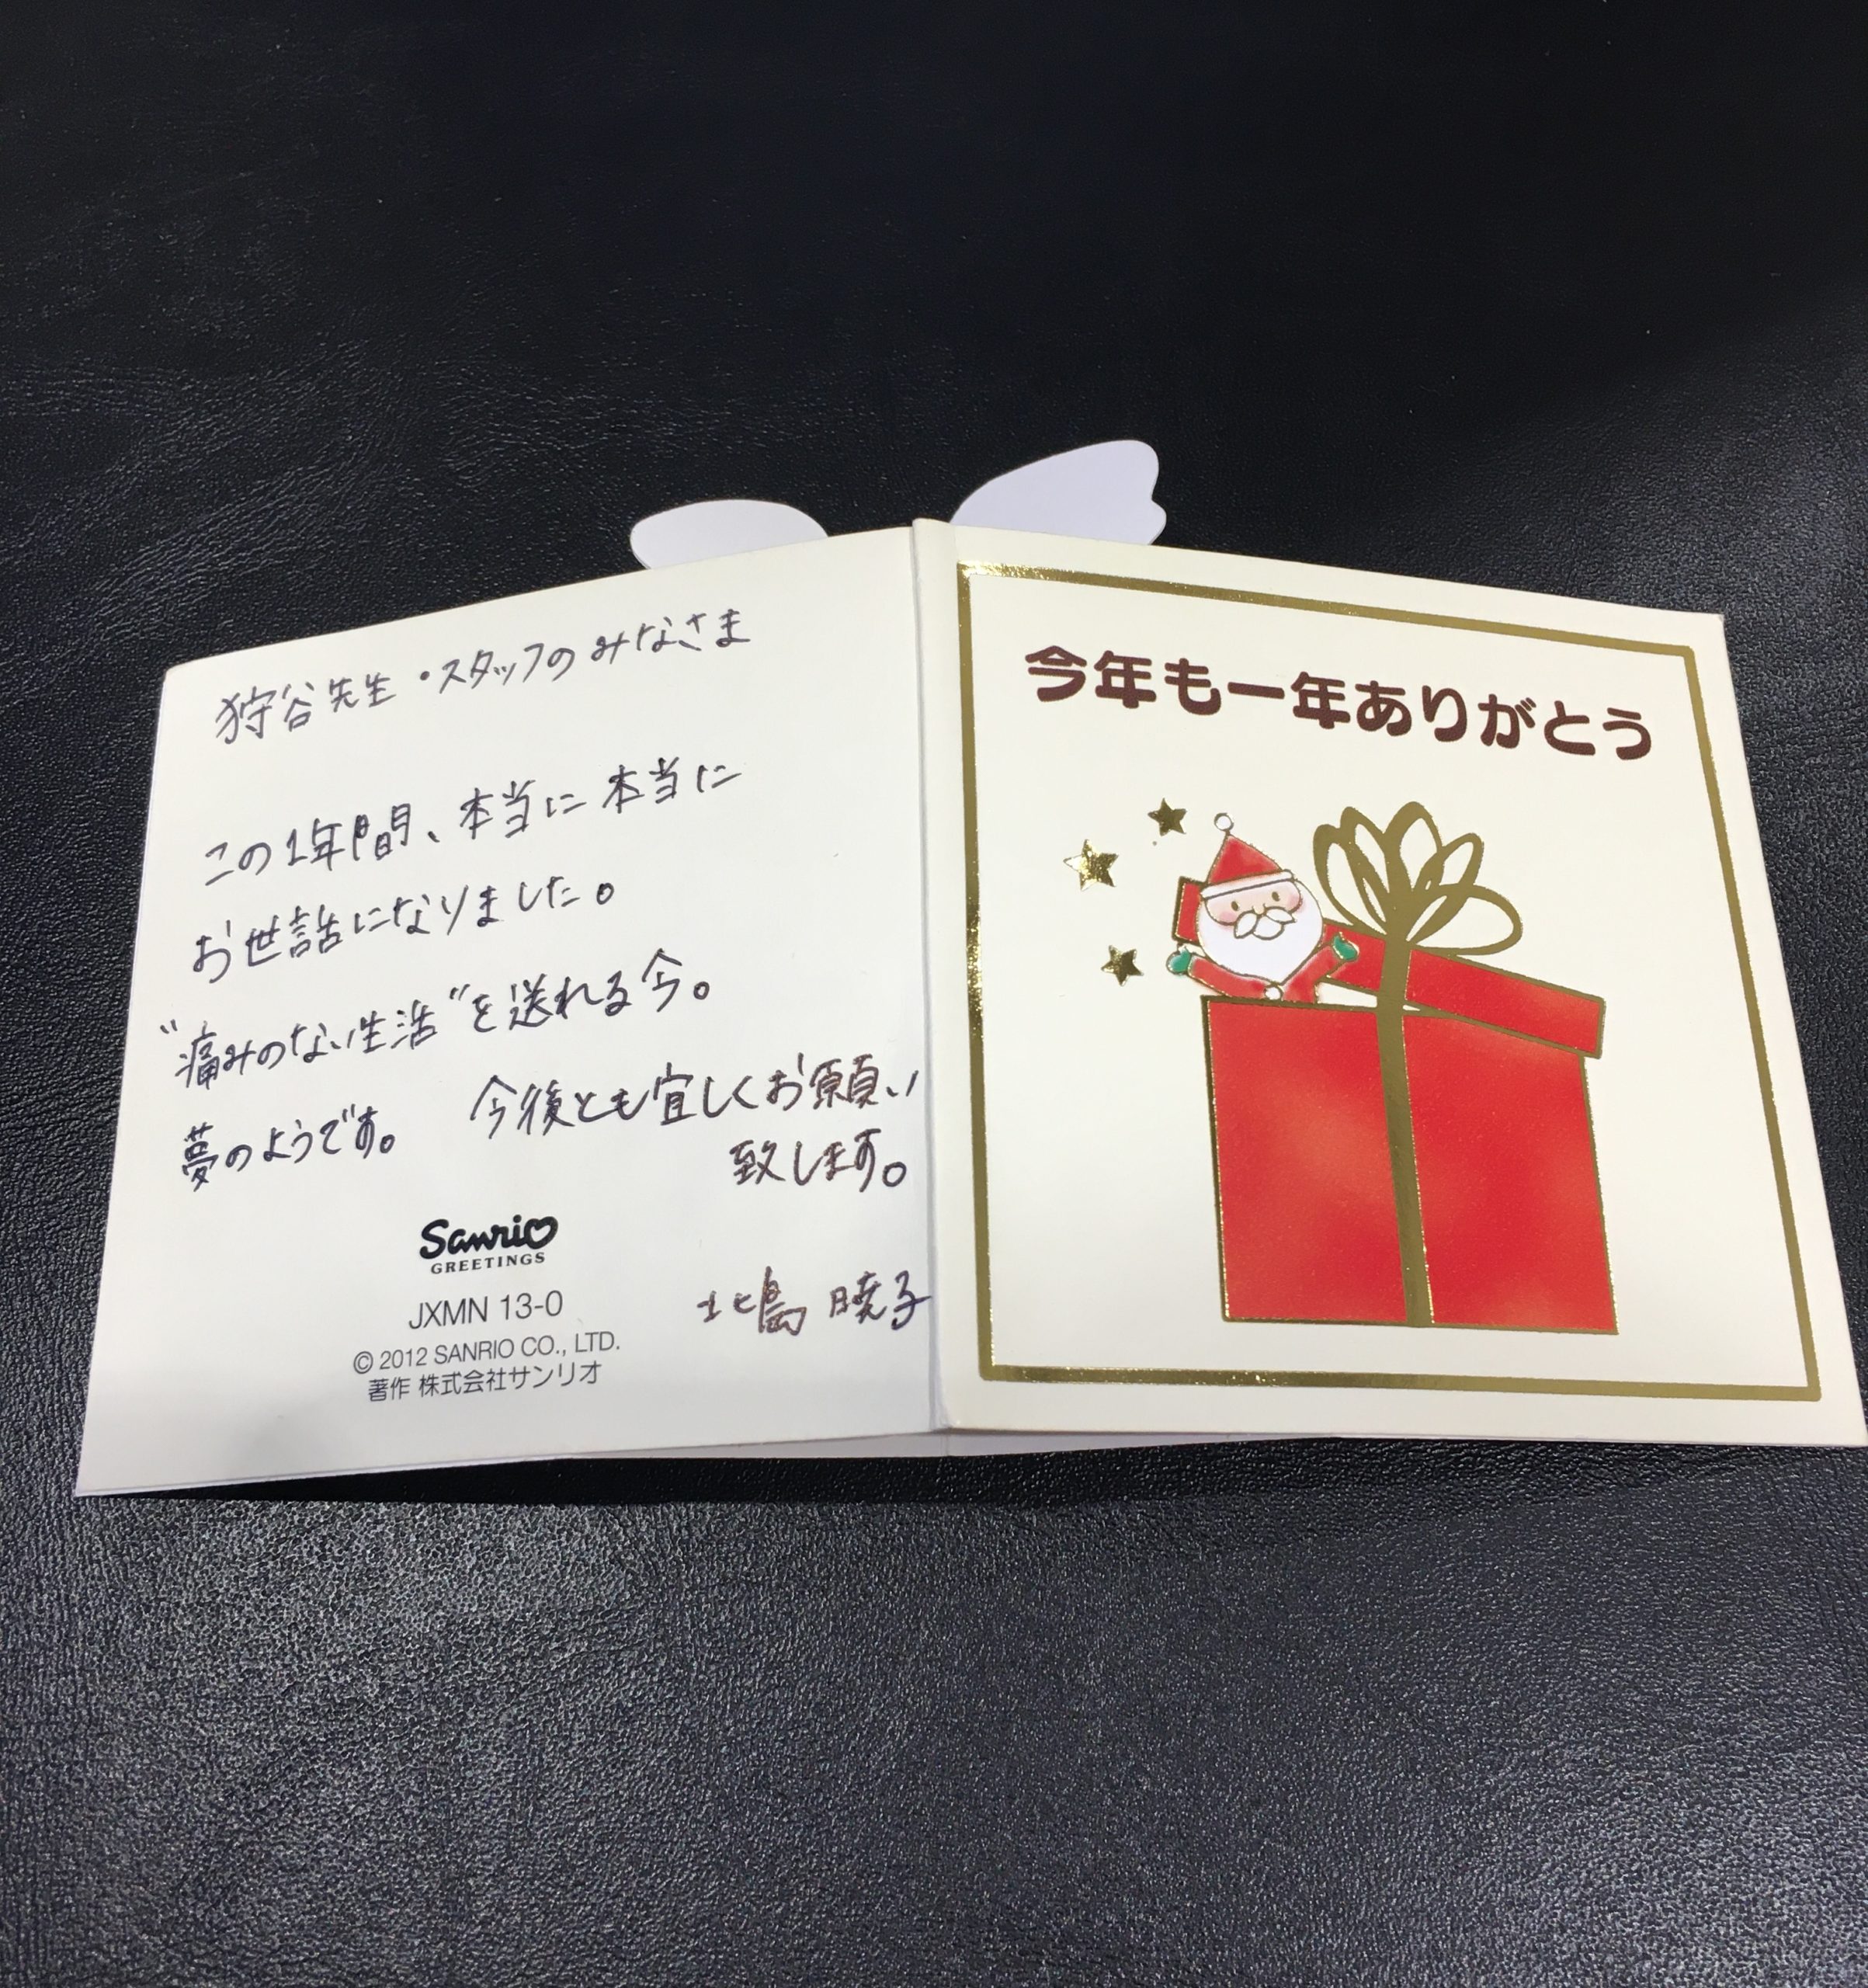 狩谷先生・スタッフのみなさま
この1年間、本当に本当に
お世話になりました。
"痛みのない生活"を送れる今。
夢のようです。 今後とも宜しくお願い
致します。
北島 暁子
Sanrio
GREETINGS
JXMN 13-0
© 2012 SANRIO CO., LTD.
著作 株式会社サンリオ
今年も一年ありがとう